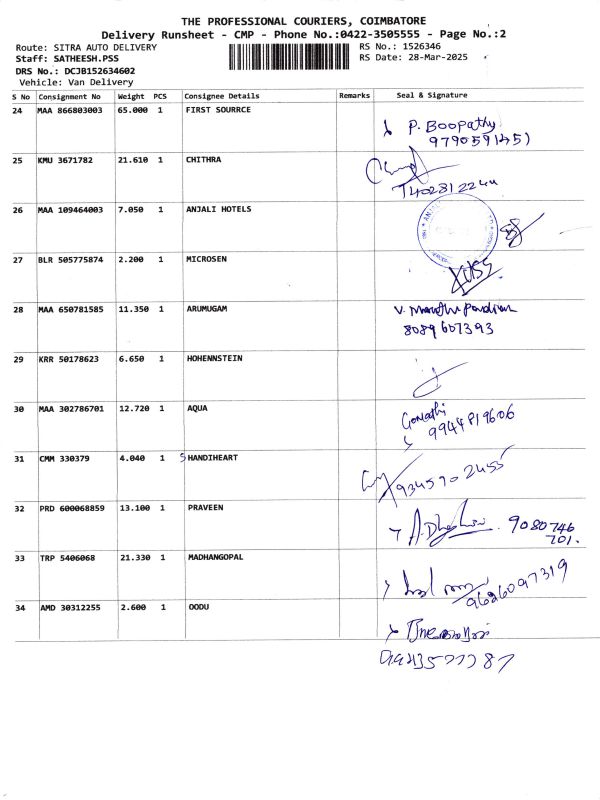 THE PROFESSIONAL COURIERS, COIMBATORE
Delivery Runsheet - CMP - Phone No.:0422-3505555 - Page No.:2
Route: SITRA AUTO DELIVERY
RS No.: 1526346
Staff: SATHEESH.PSS
RS Date: 28-Mar-2025
DRS No.: DCJB152634602
Vehicle: Van Delivery
S No Consignment No Weight PCS Consignee Details Remarks Seal & Signature
24 MAA 866803003 65.000 1 FIRST SOURRCE
P. Boopathy
25 KMU 3671782 21.610 1 CHITHRA
26 MAA 109464003 7.050 1 ANJALI HOTELS
27 BLR 505775874 2.200 1 MICROSEN
28 MAA 650781585 11.350 1 ARUMUGAM
8089607393
29 KRR 50178623 6.650 1 HOHENNSTEIN
30 MAA 302786701 12.720 1 AQUA
9944819606
31 CMM 330379 4.040 1 SHANDIHEART
9345902455
32 PRD 600068859 13.100 1 PRAVEEN
9080746
701.
33 TRP 5406068 21.330 1 MADHANGOPAL
9626097319
34 AMD 30312255 2.600 1 OODU